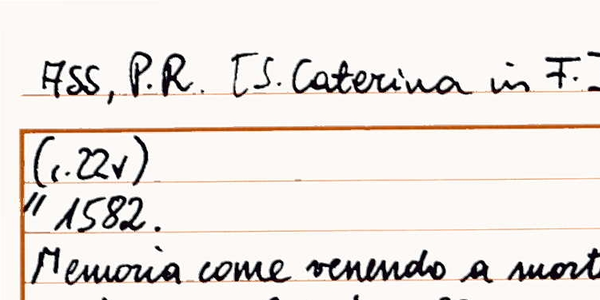 ASS, P.R. [S. Caterina in F.]
(c.22v)
" 1582.
Memoria come venendo a mort